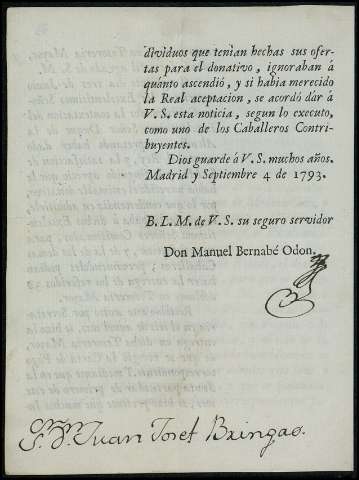 dividuos que tenian hechas sus ofer-
tas para el donativo, ignoraban á
quánto ascendió, y si habia merecido
la Real aceptacion, se acordó dár á
V. S. esta noticia, segun lo executo,
como uno de los Caballeros Contri-
buyentes.
Dios guarde á V. S. muchos años.
Madrid y Septiembre 4 de 1793.
B. L. M. de V. S. su seguro servidor
Don Manuel Bernabé Odon.
Juan Josef Bringas.